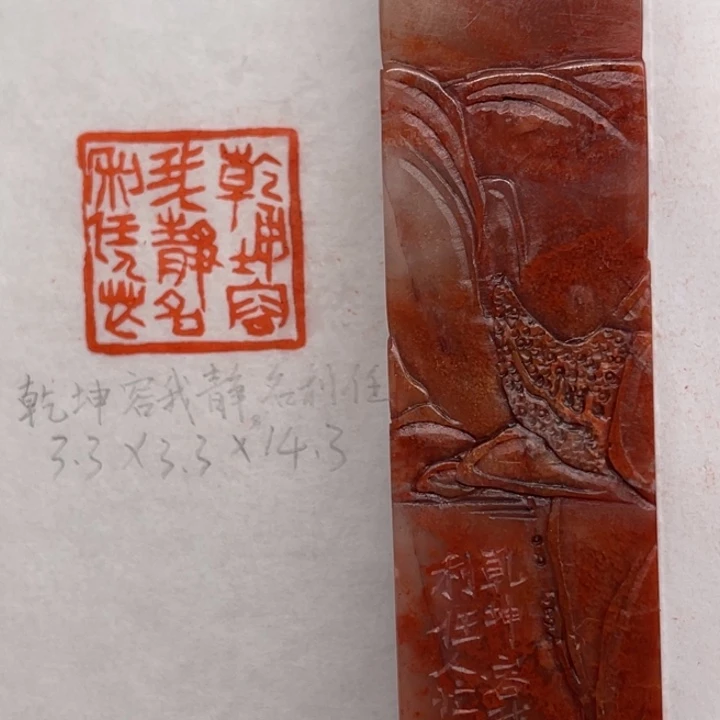 乾坤容
我静名
利任人忙
乾坤容我静名利任
3.3×3.3×14.3
乾坤容
利任人忙